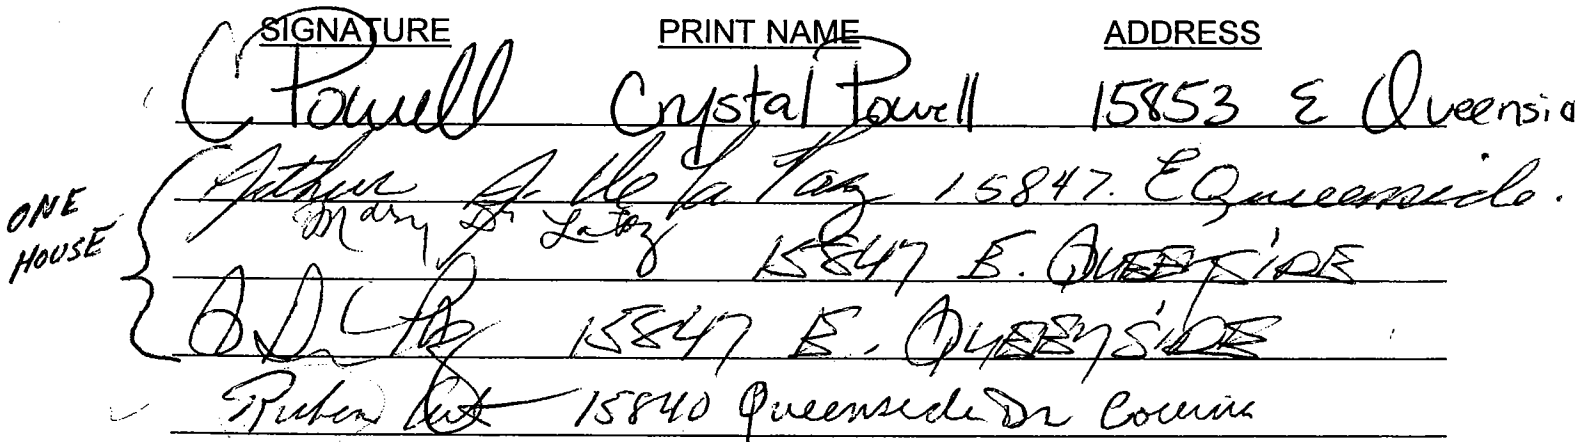 SIGNATURE PRINT NAME ADDRESS
C Powell Crystal Powell 15853 E Queensid
Arthur A. De La Paz 15847. E Queenside.
ONE Mary De La Paz
HOUSE 15847 E. QUEENSIDE
15847 E. QUEENSIDE
Ruben 15840 Queenside Dr Covina